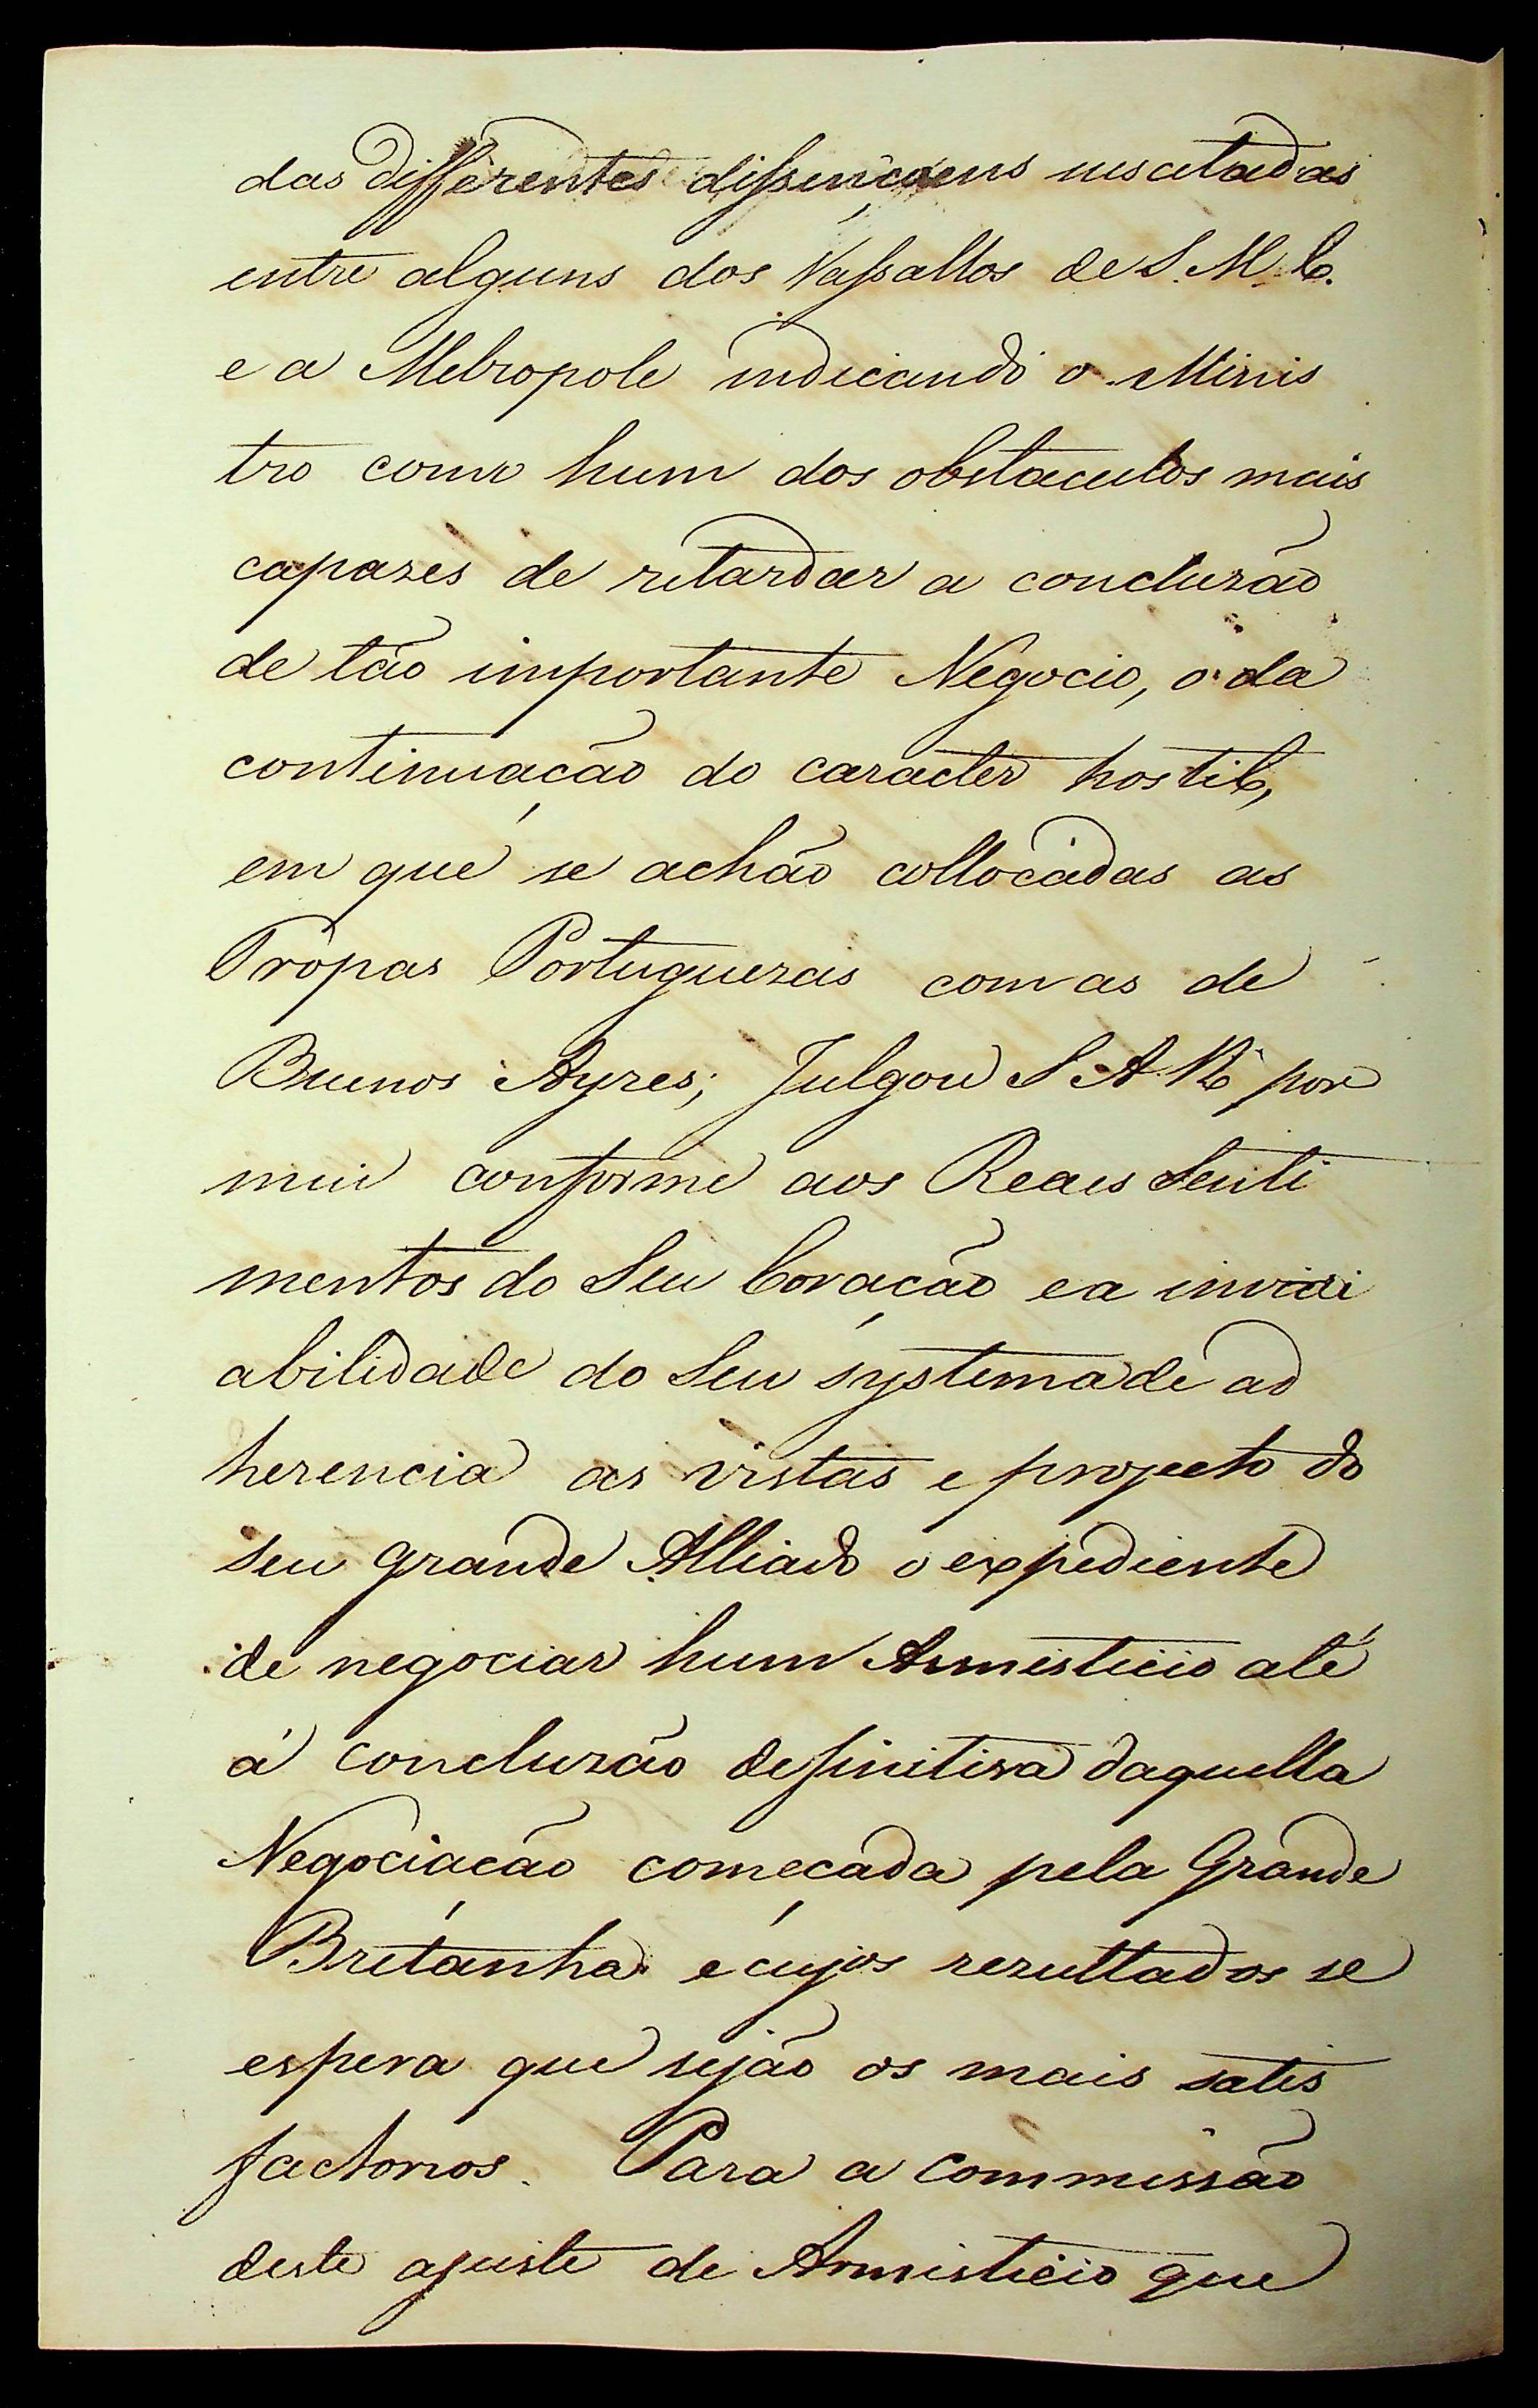 das differentes dissençoens suscitadas
entre alguns dos Vassallos de S. M. C.
e a Metropole indicando o Minis
tro como hum dos obstaculos mais
capazes de retardar a concluzão
de tão importante Negocio, o da
continuação do caracter hostil,
em que se achão collocadas as
Tropas Portuguezas com as de
Buenos Ayres; Julgou S A R por
mui conforme aos Reaes Senti
mentos do Seu Coração e a invari
abilidade do Seu systema de ad
herencia as vistas e projecto do
seu grande Alliado o expediente
de negociar hum Armisticio até
á concluzão definitiva daquella
Negociação começada pela Grande
Bretanha e cujos rezultados se
espera que sejão os mais satis
factorios. Para a Commissão
deste ajuste de Armisticio que